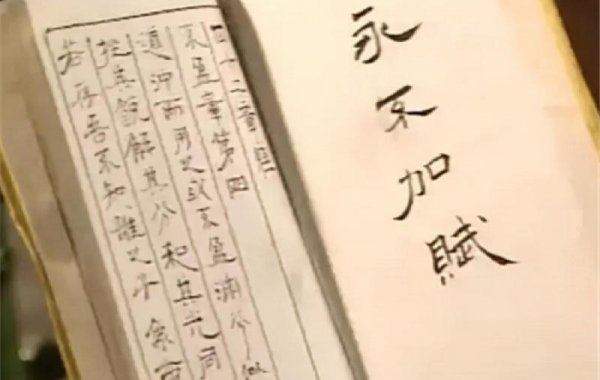 永不加賦
四十二章經
不盈章第四
道沖而用之或不盈淵兮似
挫其銳解其分和其光同
若存吾不知誰之子象